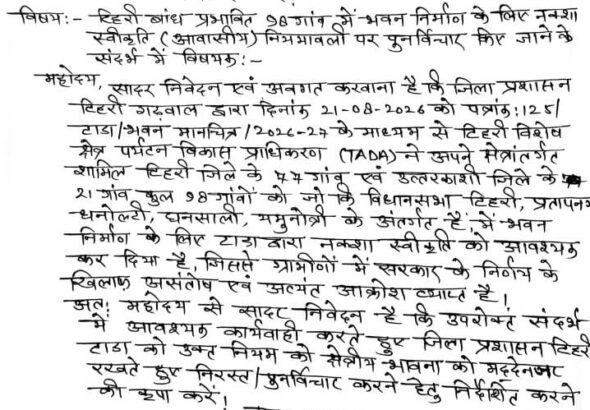 विषय:- टिहरी बांध प्रभावित 98 गांव में भवन निर्माण के लिए नक्शा
स्वीकृति (आवासीय) नियमावली पर पुनर्विचार किए जाने के
संदर्भ में विषयक:-
महोदय, सादर निवेदन एवं अवगत करवाना है कि जिला प्रशासन
टिहरी गढ़वाल द्वारा दिनांक 21-08-2026 को पत्रांक: 125/
टाडा/भवन मानचित्र/2026-27 के माध्यम से टिहरी विशेष
क्षेत्र पर्यटन विकास प्राधिकरण (TADA) ने अपने क्षेत्रांतर्गत
शामिल टिहरी जिले के 77 गांव एवं उत्तरकाशी जिले के
21 गांव कुल 98 गांवों को जो कि विधानसभा टिहरी, प्रतापनग
धनोल्टी, घनसाली, यमुनोत्री के अंतर्गत है, में भवन
निर्माण के लिए टाडा द्वारा नक्शा स्वीकृति को आवश्यक
कर दिया है, जिससे ग्रामीणों में सरकार के निर्णय के
खिलाफ असंतोष एवं अत्यंत आक्रोश व्याप्त है!
अत: महोदय से सादर निवेदन है कि उपरोक्त संदर्भ
में आवश्यक कार्यवाही करते हुए जिला प्रशासन टिहरी
टाडा को उक्त नियम को क्षेत्रीय भावना को मद्देनजर
रखते हुए निरस्त/पुनर्विचार करने हेतु निर्देशित करने
की कृपा करें!